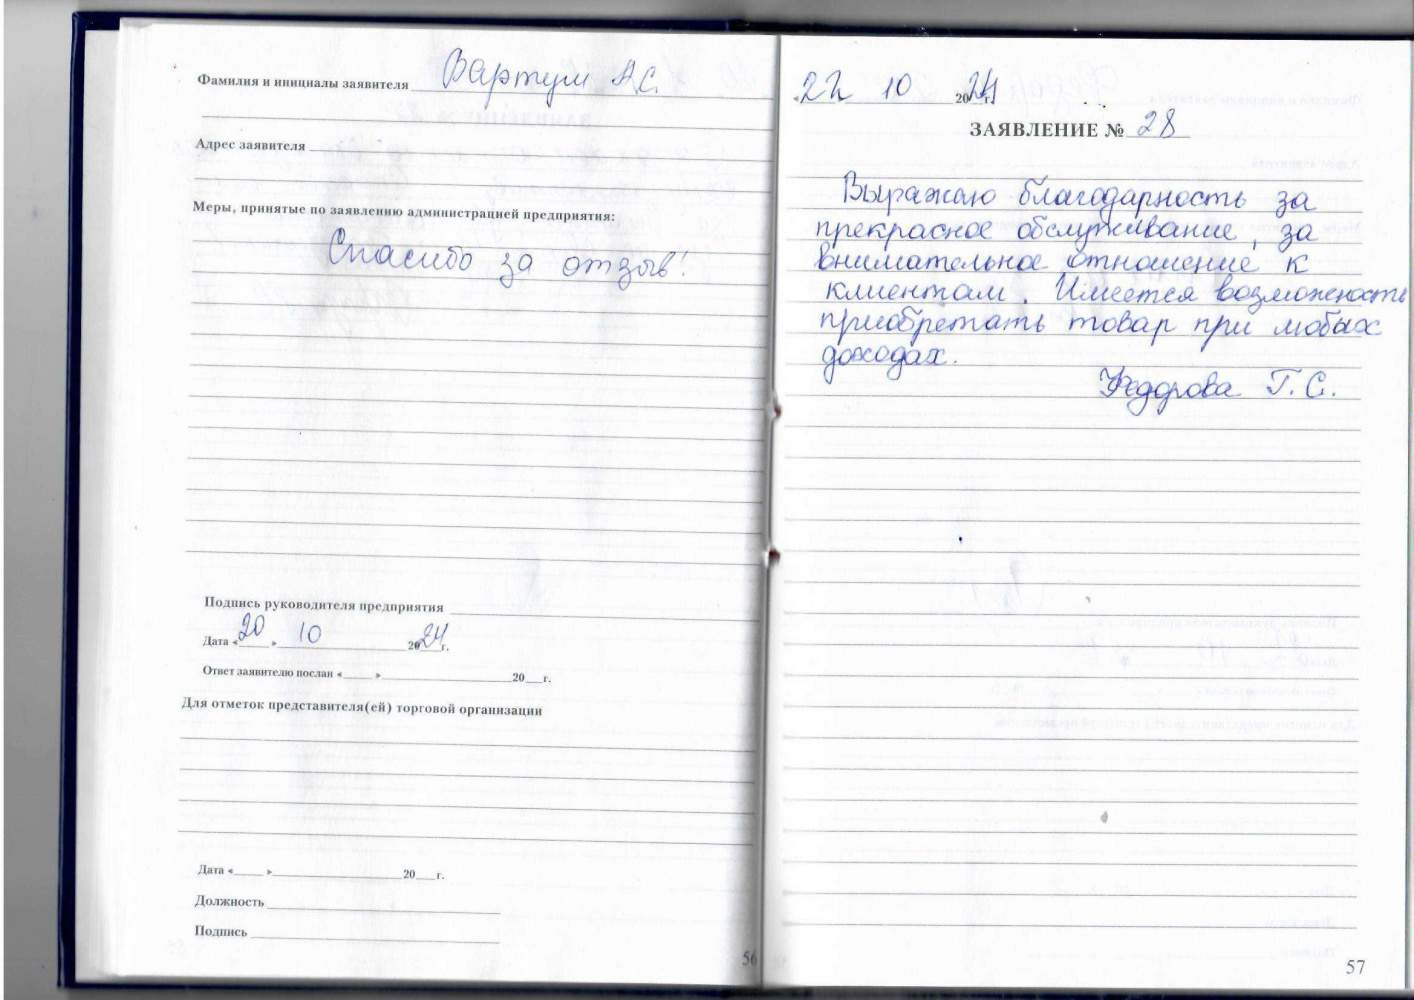 Фамилия и инициалы заявителя Вартум А.С.
Адрес заявителя
Меры, принятые по заявлению администрацией предприятия:
Спасибо за отзыв!
Подпись руководителя предприятия
Дата «20» 10 2024г.
Ответ заявителю послан «___» 20__г.
Для отметок представителя(ей) торговой организации
Дата «___» 20__г.
Должность
Подпись
56
22 10 2024г.
ЗАЯВЛЕНИЕ № 28
Выражаю благодарность за
прекрасное обслуживание, за
внимательное отношение к
клиентам. Имеется возможность
приобретать товар при любых
доходах.
Федорова Г.С.
57